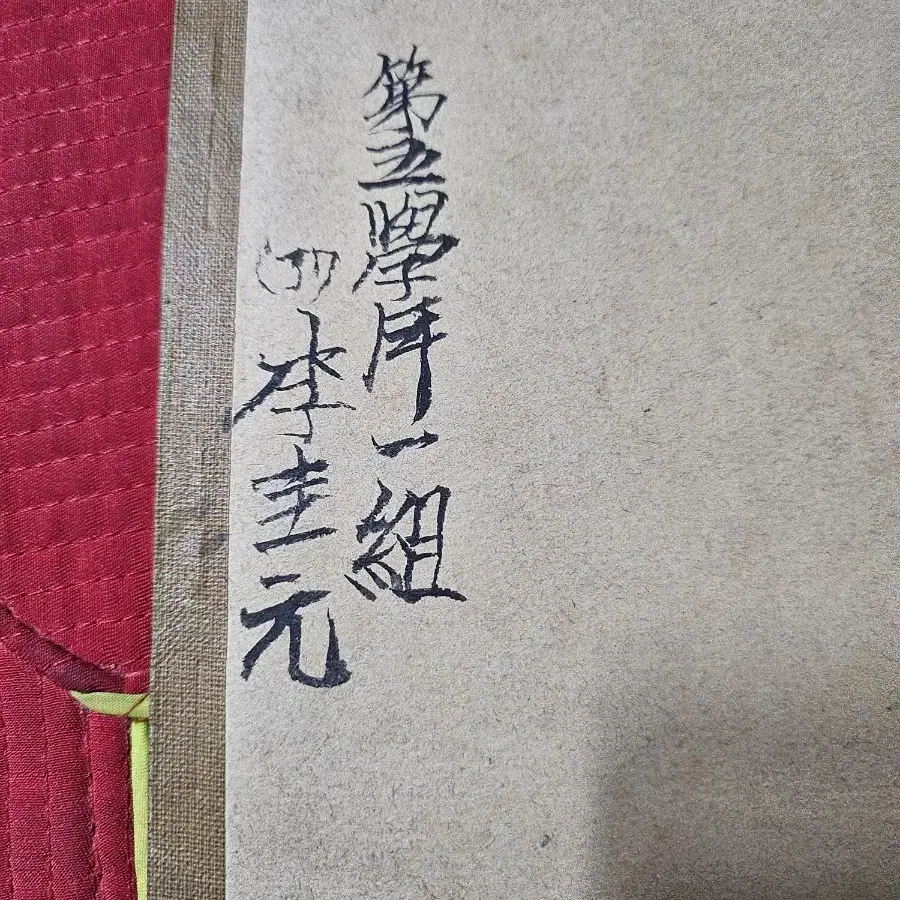 第五學年一組
李圭元